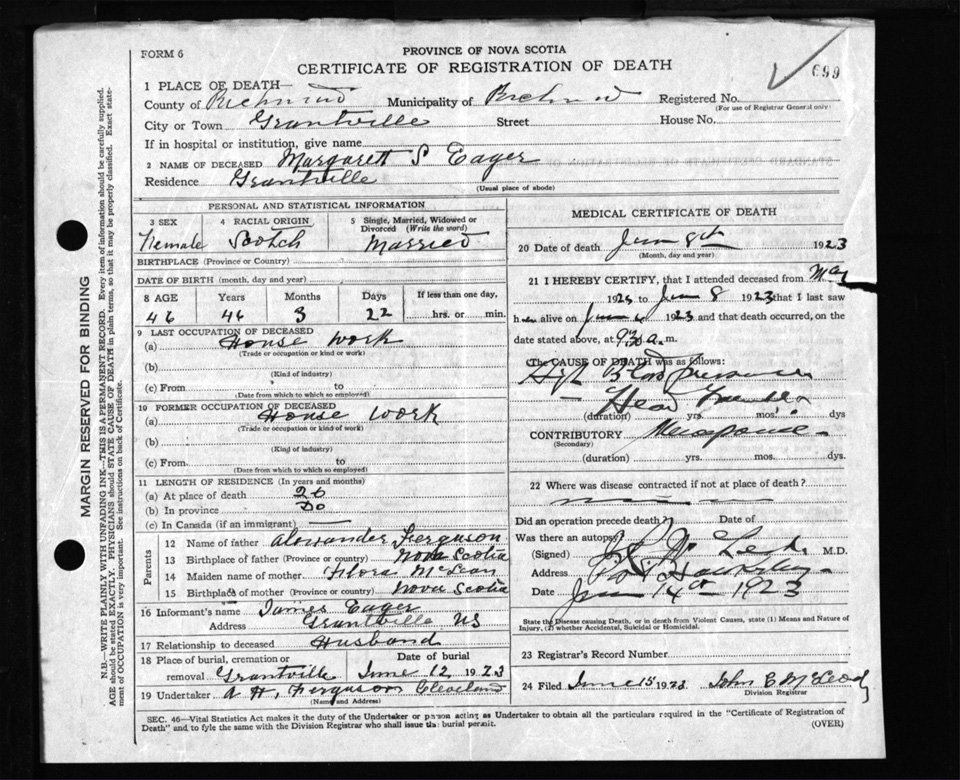 FORM 6
PROVINCE OF NOVA SCOTIA
CERTIFICATE OF REGISTRATION OF DEATH
699
1 PLACE OF DEATH—
County of Richmond Municipality of Richmond Registered No.
(For use of Registrar General only)
City or Town Grantville Street House No.
If in hospital or institution, give name
2 NAME OF DECEASED Margarett S Eager
Residence Grantville
(Usual place of abode)
PERSONAL AND STATISTICAL INFORMATION
3 SEX 4 RACIAL ORIGIN 5 Single, Married, Widowed or Divorced (Write the word)
Female Scotch Married
BIRTHPLACE (Province or Country)
DATE OF BIRTH (month, day and year)
8 AGE Years Months Days If less than one day,
46 46 3 22 hrs. or min.
9 LAST OCCUPATION OF DECEASED
(a) House work
(Trade or occupation or kind or work)
(b)
(Kind of industry)
(c) From to
(Date from which to which so employed)
10 FORMER OCCUPATION OF DECEASED
(a) House work
(Trade or occupation or kind of work)
(b)
(Kind of industry)
(c) From to
(Date from which to which employed)
11 LENGTH OF RESIDENCE (In years and months)
(a) At place of death 26
(b) In province Do
(c) In Canada (if an immigrant) —
Parents
12 Name of father Alexander Ferguson
13 Birthplace of father (Province or country) Nova Scotia
14 Maiden name of mother Flora McLean
15 Birthplace of mother (Province or country) Nova Scotia
16 Informant's name James Eager
Address Grantville NS
17 Relationship to deceased Husband
18 Place of burial, cremation or removal Grantville Date of burial June 12 1923
19 Undertaker A H. Ferguson Cleveland
(Name and Address)
MEDICAL CERTIFICATE OF DEATH
20 Date of death June 8th 1923
(Month, day and year)
21 I HEREBY CERTIFY, that I attended deceased from May
to June 8 1923 that I last saw
h alive on June 1923 and that death occurred, on
date stated above, at 9:30 a. m.
The CAUSE OF DEATH was as follows:
High Blood Pressure
Heart
(duration) yrs. mos. dys
CONTRIBUTORY Menopause
(Secondary)
(duration) yrs. mos. dys.
22 Where was disease contracted if not at place of death?
Did an operation precede death? Date of
Was there an autopsy
(Signed) M.D.
Address Port Hawkesbury
Date June 14th 1923
State the Disease causing Death, or in death from Violent Causes, state (1) Means and Nature of Injury, (2) whether Accidental, Suicidal or Homicidal.
23 Registrar's Record Number
24 Filed June 15 1923 John B McLeod
Division Registrar
SEC. 46—Vital Statistics Act makes it the duty of the Undertaker or person acting as Undertaker to obtain all the particulars required in the "Certificate of Registration of
Death" and to fyle the same with the Division Registrar who shall issue the burial permit.
(OVER)
MARGIN RESERVED FOR BINDING
N.B.—WRITE PLAINLY WITH UNFADING INK—THIS IS A PERMANENT RECORD. Every item of information should be carefully supplied.
AGE should be stated EXACTLY. PHYSICIANS should STATE CAUSE OF DEATH in plain terms, so that it may be properly classified. Exact statement of OCCUPATION is very important. See instructions on back of Certificate.